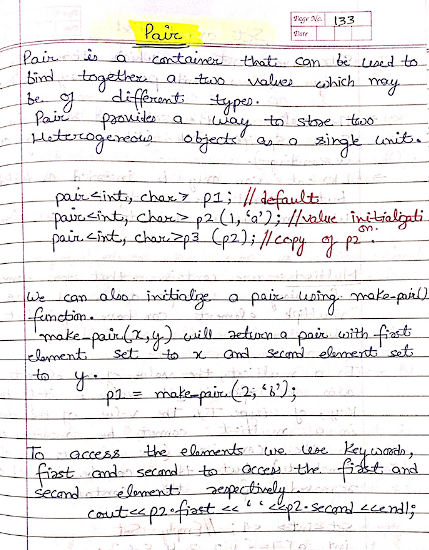 Page No. 133
Date
Pair
Pair is a container that can be used to
bind together a two values which may
be of different types.
Pair provides a way to store two
Heterogeneous objects as a single unit.
pair<int, char> p1; // default
pair<int, char> p2 (1, 'a'); // value initializati
on.
pair<int, char>p3 (p2); // copy of p2
We can also initialize a pair using make-pair()
function.
make-pair(x,y) will return a pair with first
element set to x and second element set
to y.
p1 = make-pair(2, 'b');
To access the elements we use keywords,
first and second to access the first and
second element respectively.
cout<<p2.first << ' ' <<p2.second <<endl;